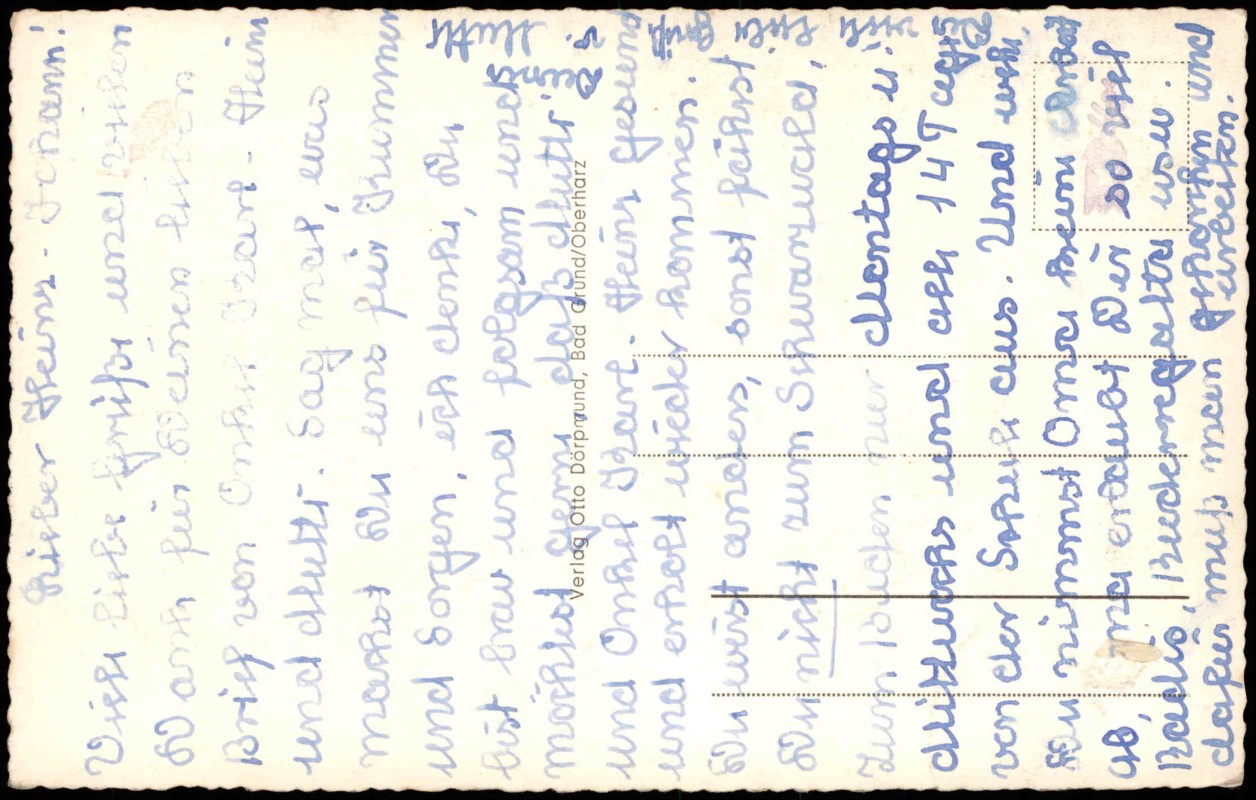 Lieber Heinz-Johann!
Viele liebe Grüße und vielen
Dank für Deinen lieben
Brief von Onkel Karl-Heinz
und Mutti. Sag mal, was
machst Du uns für Kummer
und Sorgen, ich denke, Du
bist brav und folgsam und
möchtest gern, daß Mutti
und Onkel Karl-Heinz gesund
und erholt wieder kommen.
Du wirst anders, sonst fährst
Du nicht zum Schwarzwald,
zum Baden nur Montags u.
Mittwochs und alle 14 Tage
von der Schule aus. Und wehe
Du nimmst Oma kein Arbeit
ab, Oma erlaubt Dir so viel
Radio, Kuckernquelltal usw.
dafür muß man gehorchen und
arbeiten.
viele liebe
Deine Mutti
Verlag Otto Dörpmund, Bad Grund/Oberharz